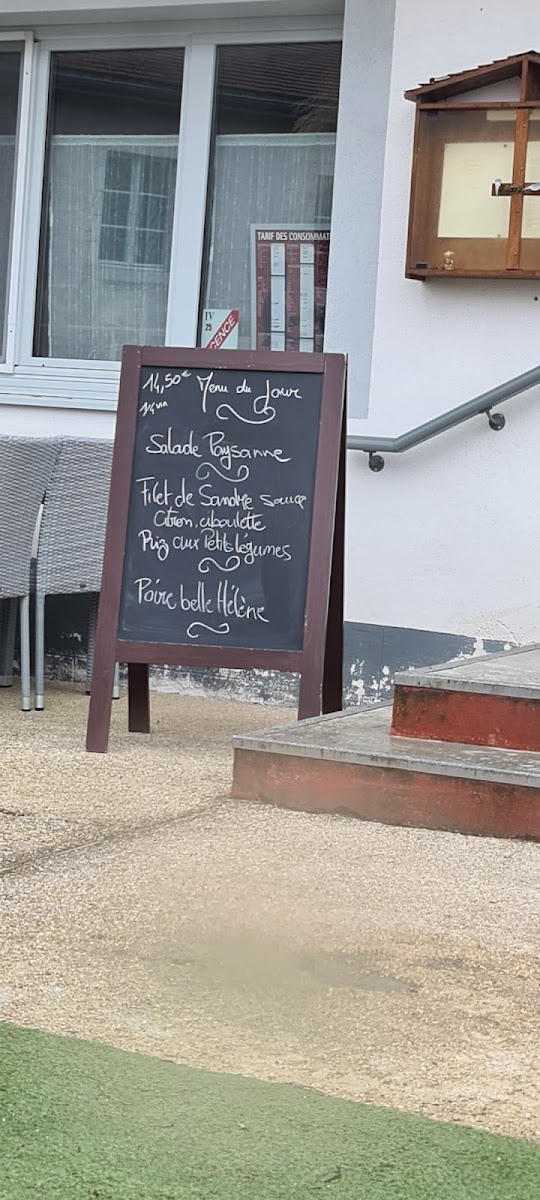 TARIF DES CONSOMMAT
IV
25
GENCE
14,50€ Menu du Jour
1/4 vin
Salade Paysanne
Filet de Sandre sauce
Citron, ciboulette
Riz aux Petits légumes
Poire belle Hélène